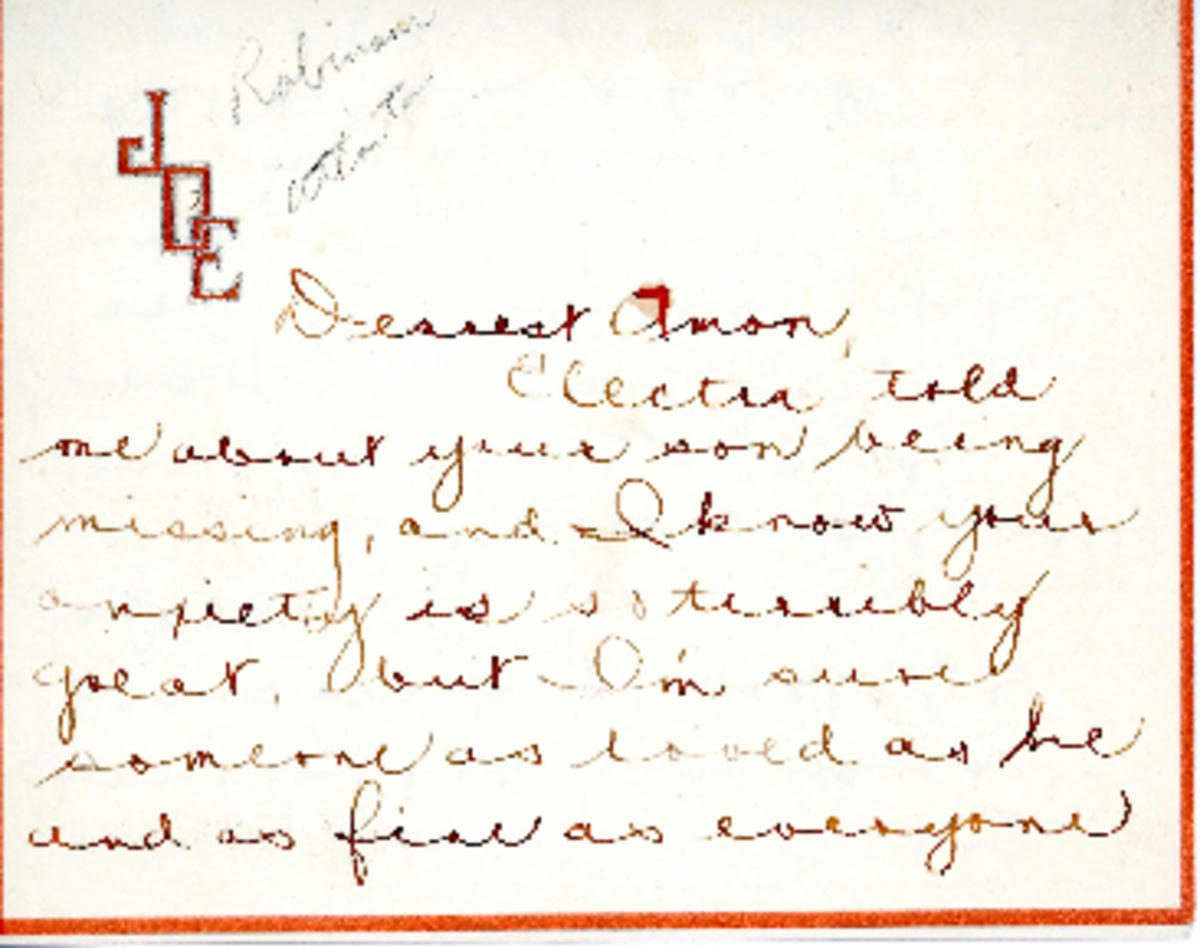 Robinson
JOE
Dearest Amon,
Electra told
me about your son being
missing, and I know your
anxiety is so terribly
great, but I'm sure
someone as loved as he
and as fine as everyone